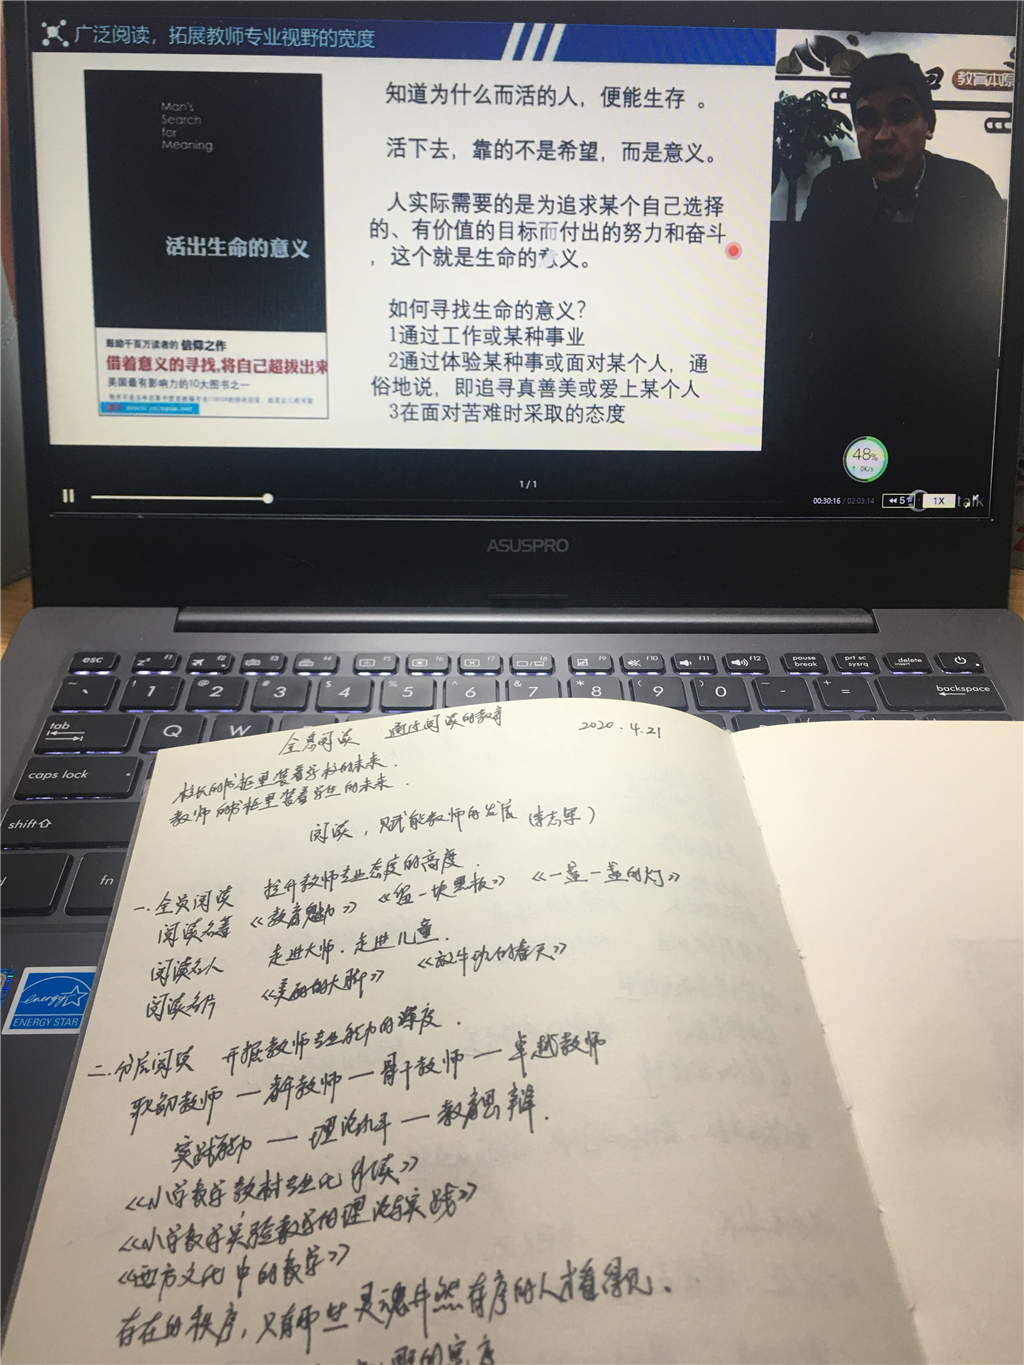 广泛阅读，拓展教师专业视野的宽度
教育本原
Man's
Search
for
Meaning
活出生命的意义
鼓励千百万读者的 信仰之作
借着意义的寻找,将自己超拔出来
美国最有影响力的10大图书之一
知道为什么而活的人，便能生存 。
活下去，靠的不是希望，而是意义。
人实际需要的是为追求某个自己选择
的、有价值的目标而付出的努力和奋斗
，这个就是生命的意义。
如何寻找生命的意义?
1通过工作或某种事业
2通过体验某种事或面对某个人，通
俗地说，即追寻真善美或爱上某个人
3在面对苦难时采取的态度
48%
↑ 0K/s
1/1
00:30:16 / 02:03:14
5 1X talk
ASUSPRO
esc f1 f2 f3 f4 f5 f6 f7 f8 f9 f10 f11 f12 pause break prt sc sysrq delete insert
~ ` ! 1 @ 2 # 3 $ 4 % 5 ^ 6 & 7 * 8 ( 9 ) 0 _ - + = backspace
tab Q W
caps lock
shift
fn
energy
ENERGY STAR
全息阅读 通过阅读的教育 2020.4.21
校长的书柜里装着学校的未来.
教师的书柜里装着学生的未来.
阅读，赋能教师的发展 (李志军)
一.全员阅读 提升教师专业态度的高度.
阅读名著 《教育魅力》 《留一块黑板》 《一盏一盏的灯》
阅读名人 走进大师.走进儿童.
阅读名片 《美丽的大脚》 《放牛班的春天》
二.分层阅读 开掘教师专业能力的深度.
职初教师—青年教师—骨干教师—卓越教师
实践能力—理论水平—教育思辩.
《小学数学教材专业化解读》
《小学数学实验教学的理论与实践》
《西方文化中的数学》
存在的秩序，只有那些灵魂井然有序的人才看得见.
野的宽度